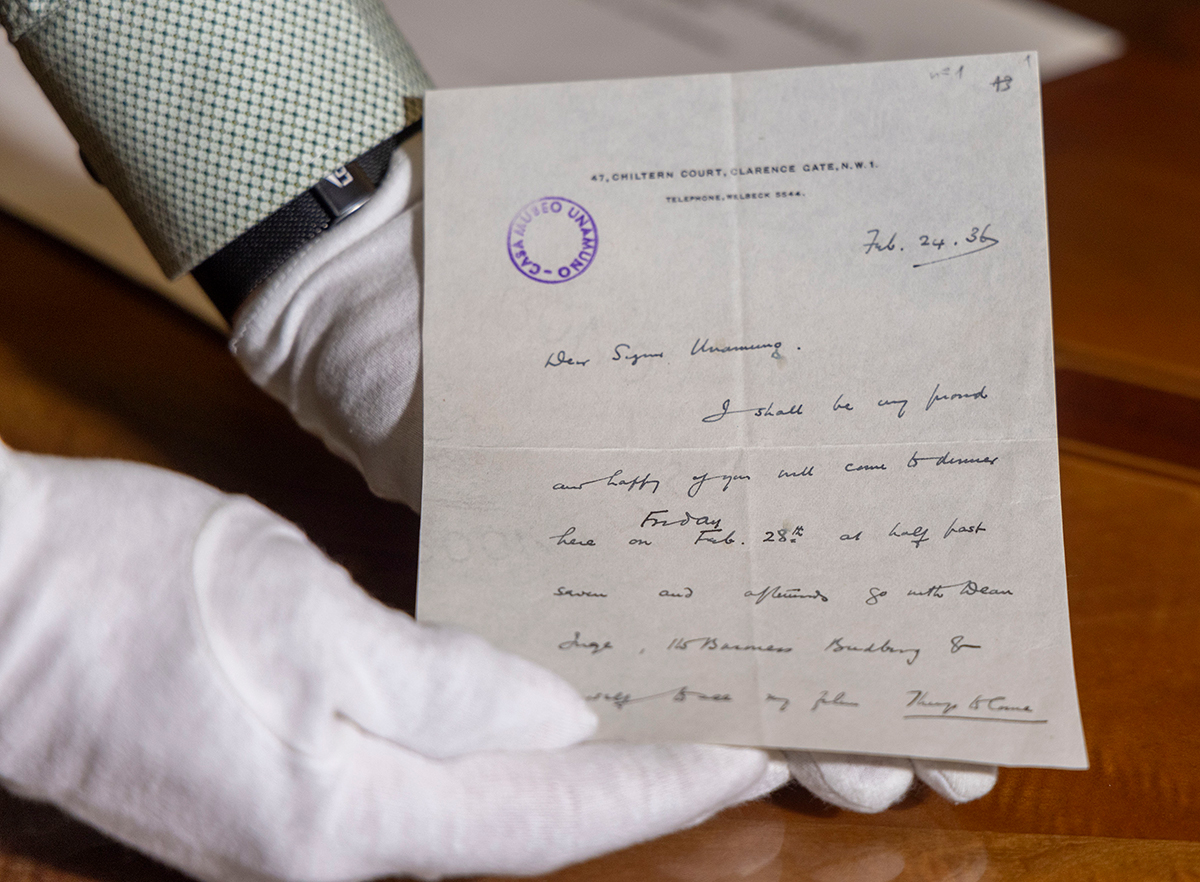 n=1 1
43
47, CHILTERN COURT, CLARENCE GATE, N.W.1.
TELEPHONE, WELBECK 5544.
CASA MUSEO UNAMUNO -
Feb. 24. 36
Dear Signor Unamuno.
I shall be very proud
and happy if you will come to dinner
Friday
here on Feb. 28th at half past
seven and afterwards go with Dean
Inge, the Baroness Budberg &
to see my film Things to Come